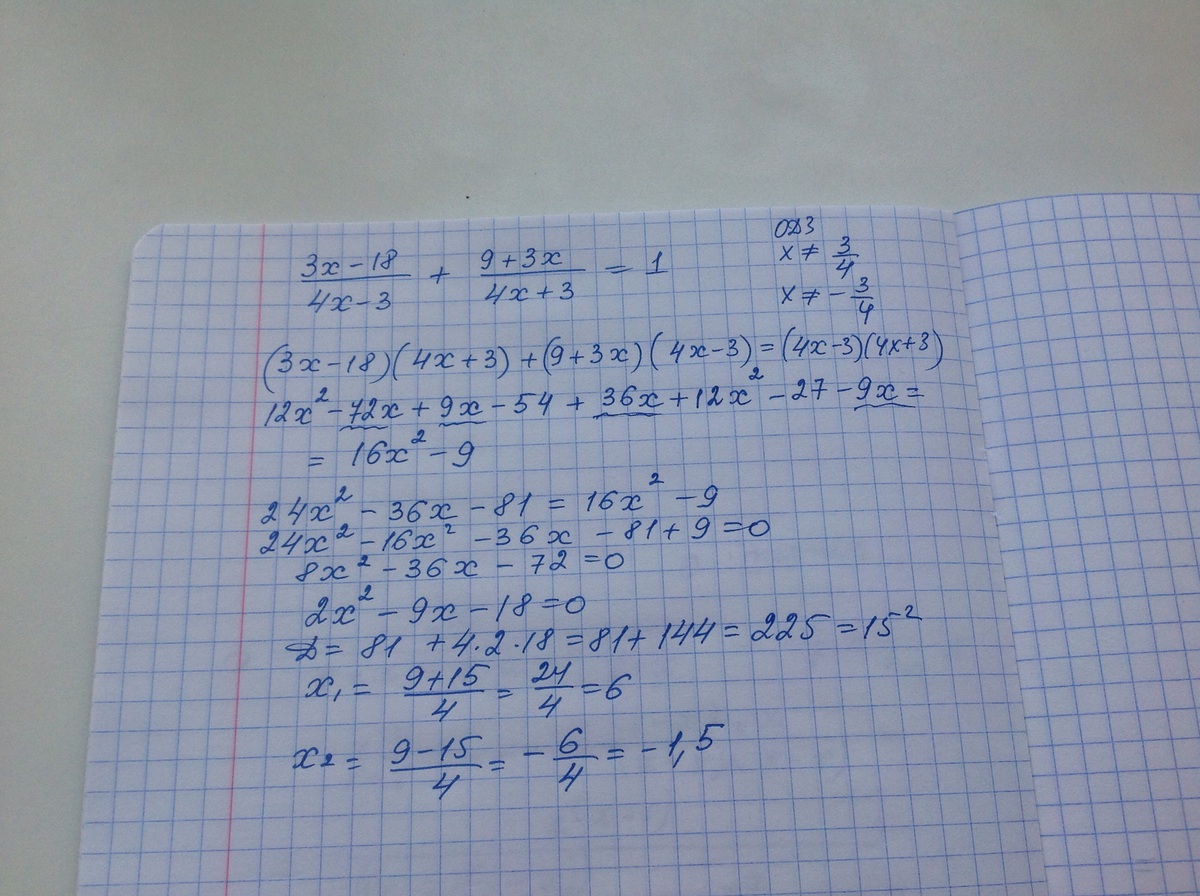 (3x-18)/(4x-3) + (9+3x)/(4x+3) = 1
ОДЗ
x ≠ 3/4
x ≠ -3/4
(3x-18)(4x+3)+(9+3x)(4x-3)=(4x-3)(4x+3)
12x²-72x+9x-54+36x+12x²-27-9x=
= 16x²-9
24x²-36x-81=16x²-9
24x²-16x²-36x-81+9=0
8x²-36x-72=0
2x²-9x-18=0
D=81+4·2·18=81+144=225=15²
x₁=(9+15)/4=24/4=6
x₂=(9-15)/4=-6/4=-1,5